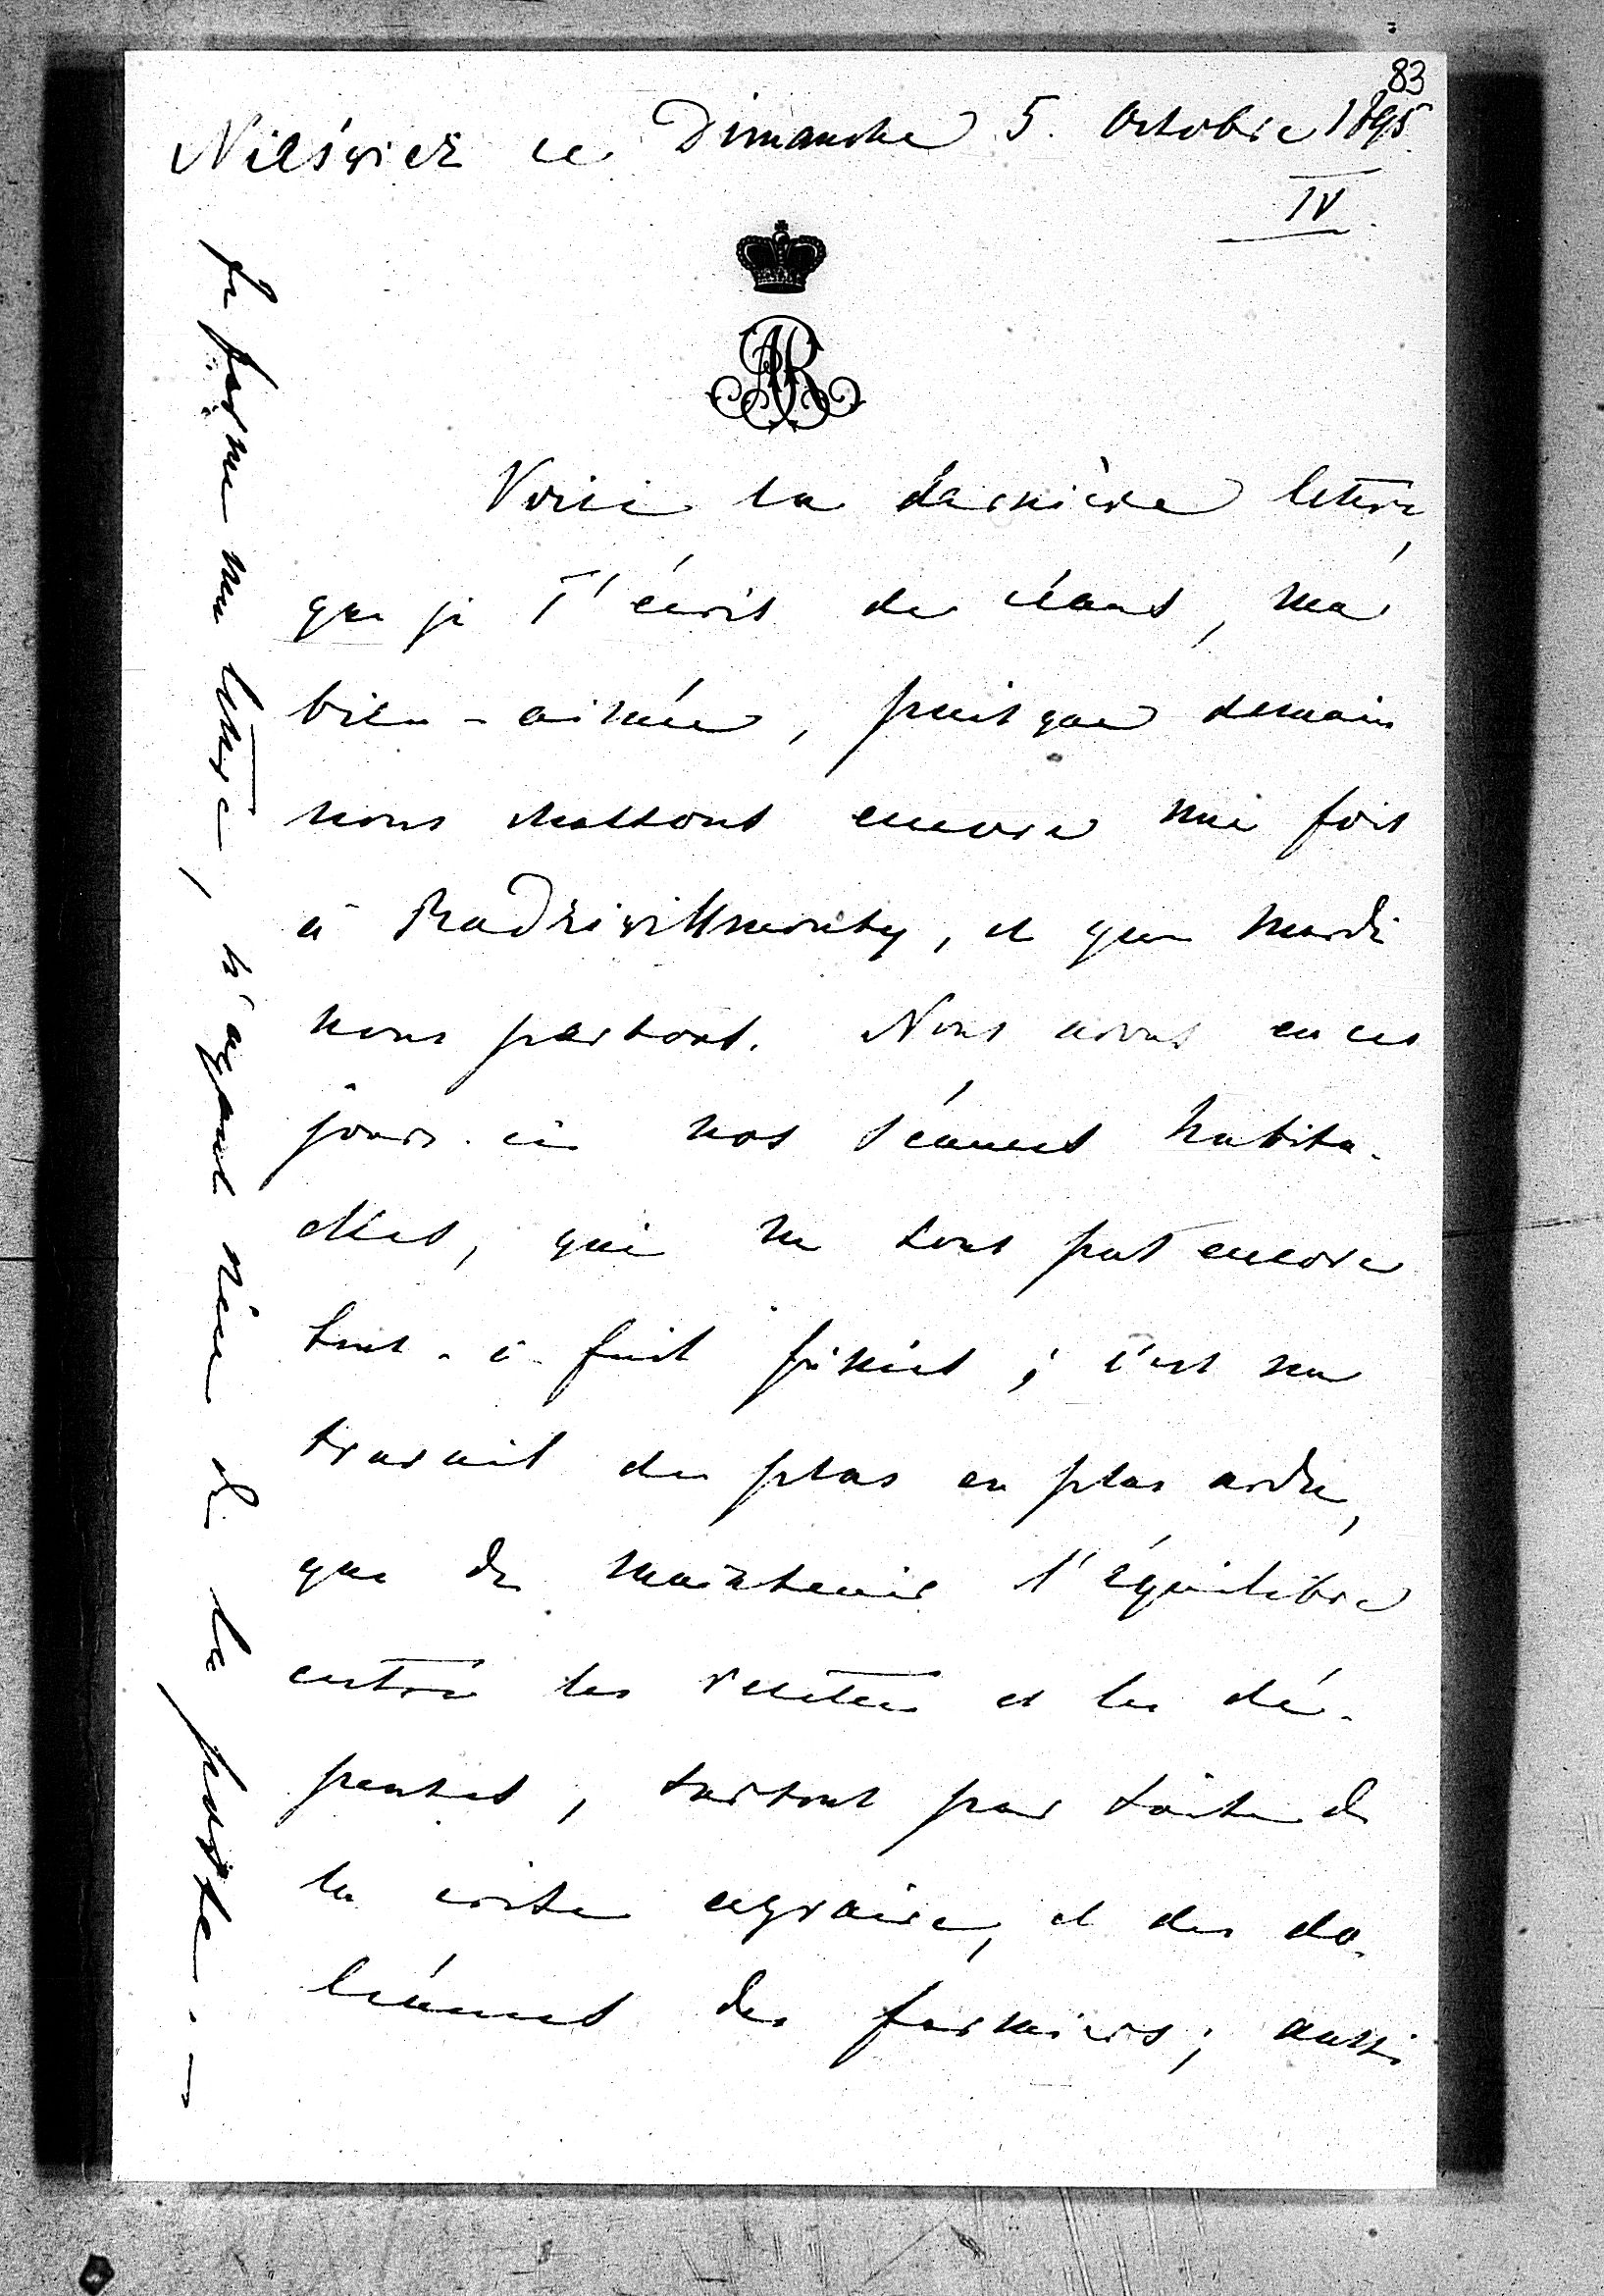 83
Nieświeź ce Dimanche 5. Octobre 1895
IV.
AR
Voici la dernière lettre,
que je T'écris de céans, ma
bien-aimée, puisque demain
nous chassons encore une fois
à Radziwiłłmonty, et que Mardi
nous partons. Nous avons eu ces
jours-ci nos séances habitu-
elles, qui ne sont pas encore
tout-à-fait finies; c'est un
travail de plus en plus ardu,
que de maintenir l'équilibre
entre les recettes et les dé-
penses, surtout par suite de
la crise agraire, et des do-
léances des fermiers; aussi
Je ferme ma lettre, n'ayant rien de la poste. —